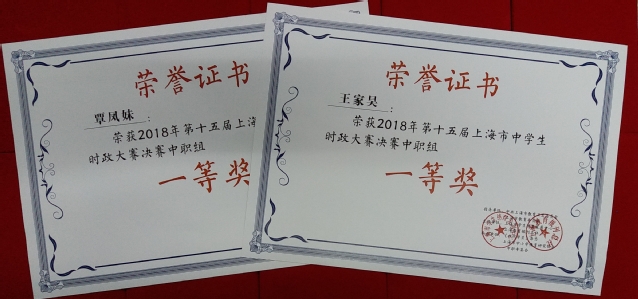 荣誉证书
覃凤妹：
荣获2018年第十五届上海
时政大赛决赛中职组
一等奖
荣誉证书
王家昊：
荣获2018年第十五届上海市中学生
时政大赛决赛中职组
一等奖